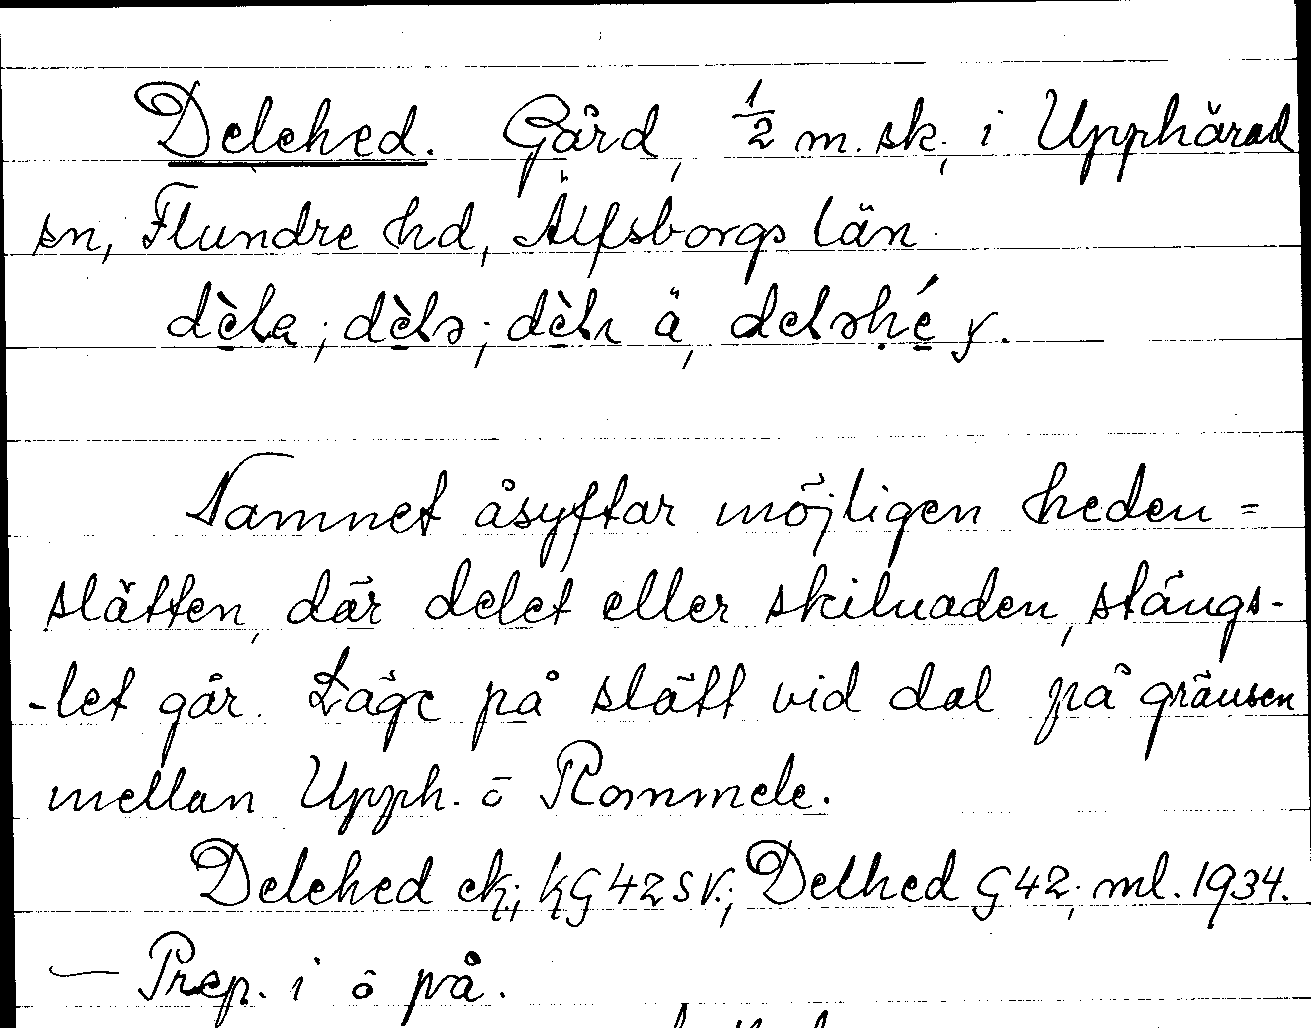 Delehed. Gård, 1/2 m. sk. i Upphärad
sn, Flundre hd, Älfsborgs län
dè̱la; dè̱lə; dè̱lı ä, deləḥé̱ y.
Namnet åsyftar möjligen heden =
slätten, där delet eller skilnaden, stängs-
-let går. Läge på slätt vid dal på gränsen
mellan Upph. o Rommele.
Delehed ek; kG42SV.; Delhed G42; ml. 1934.
— Prep. i o på.